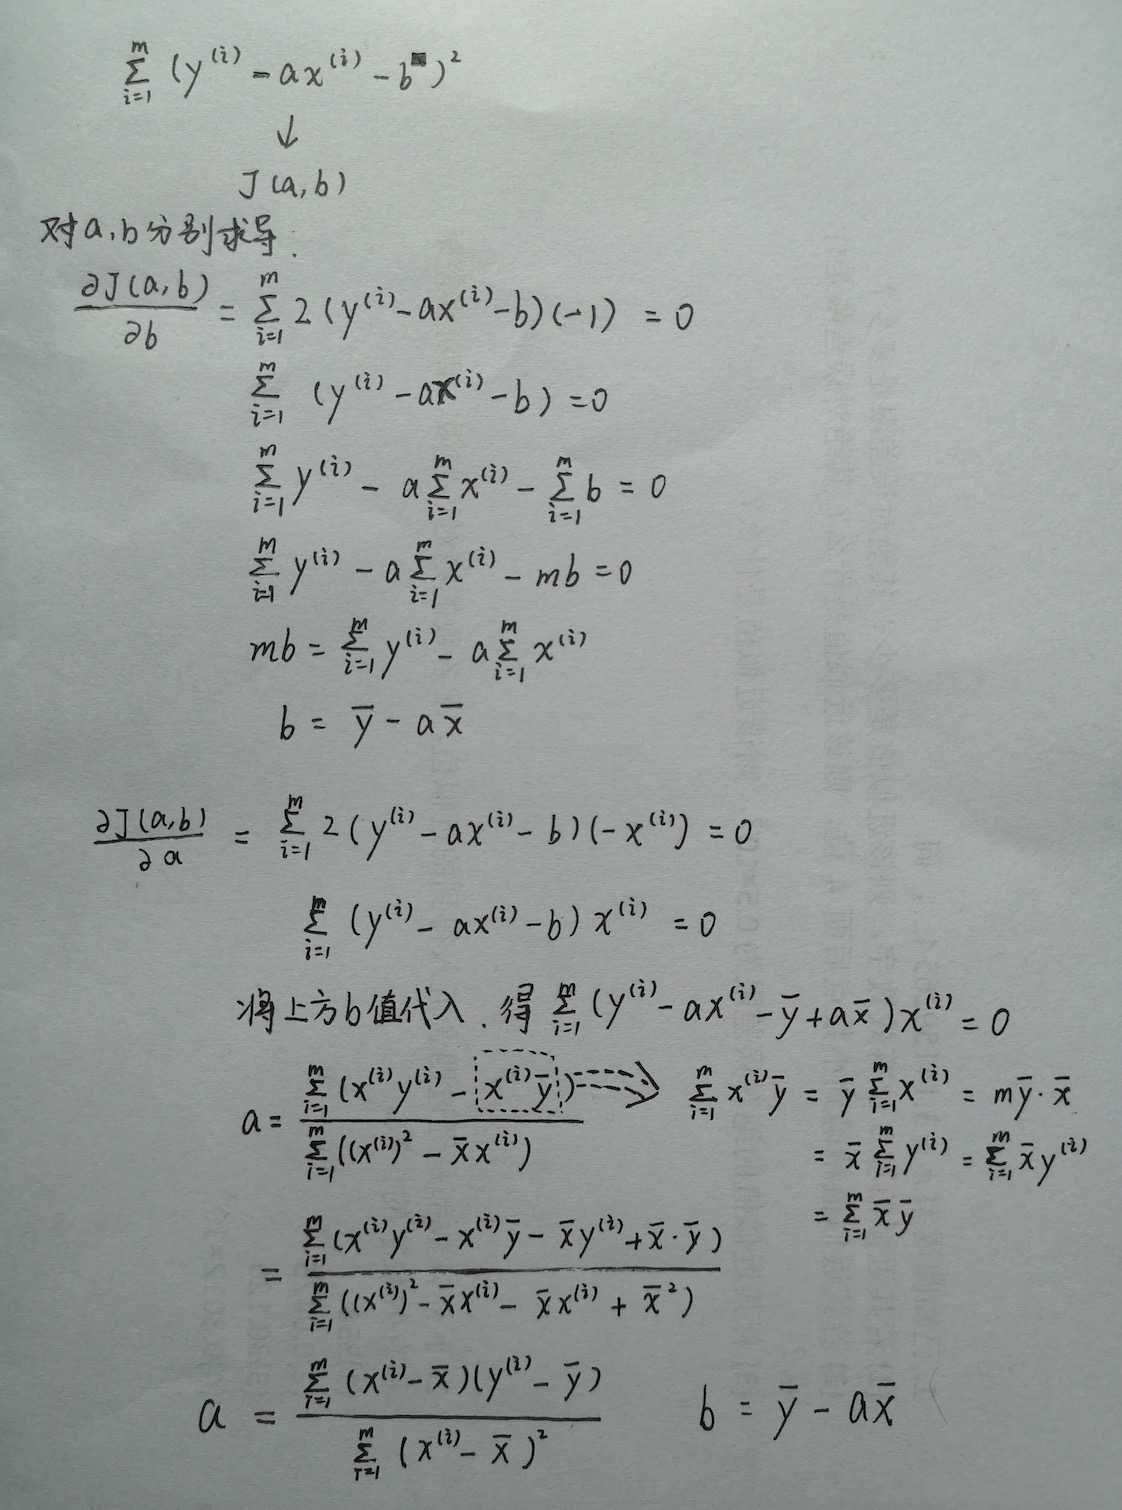 $\sum_{i=1}^{m} (y^{(i)} - ax^{(i)} - b)^2$
↓
J(a,b)
对a,b分别求导.
$\frac{\partial J(a,b)}{\partial b} = \sum_{i=1}^{m} 2(y^{(i)} - ax^{(i)} - b)(-1) = 0$
$\sum_{i=1}^{m} (y^{(i)} - ax^{(i)} - b) = 0$
$\sum_{i=1}^{m} y^{(i)} - a\sum_{i=1}^{m} x^{(i)} - \sum_{i=1}^{m} b = 0$
$\sum_{i=1}^{m} y^{(i)} - a\sum_{i=1}^{m} x^{(i)} - mb = 0$
$mb = \sum_{i=1}^{m} y^{(i)} - a\sum_{i=1}^{m} x^{(i)}$
$b = \bar{y} - a\bar{x}$
$\frac{\partial J(a,b)}{\partial a} = \sum_{i=1}^{m} 2(y^{(i)} - ax^{(i)} - b)(-x^{(i)}) = 0$
$\sum_{i=1}^{m} (y^{(i)} - ax^{(i)} - b)x^{(i)} = 0$
将上方b值代入.得 $\sum_{i=1}^{m} (y^{(i)} - ax^{(i)} - \bar{y} + a\bar{x})x^{(i)} = 0$
$a = \frac{\sum_{i=1}^{m} (x^{(i)}y^{(i)} - x^{(i)}\bar{y})}{\sum_{i=1}^{m} ((x^{(i)})^2 - \bar{x}x^{(i)})}$
$\sum_{i=1}^{m} x^{(i)}\bar{y} = \bar{y}\sum_{i=1}^{m} x^{(i)} = m\bar{y} \cdot \bar{x}$
$= \bar{x}\sum_{i=1}^{m} y^{(i)} = \sum_{i=1}^{m} \bar{x}y^{(i)}$
$= \sum_{i=1}^{m} \bar{x}\bar{y}$
$= \frac{\sum_{i=1}^{m} (x^{(i)}y^{(i)} - x^{(i)}\bar{y} - \bar{x}y^{(i)} + \bar{x} \cdot \bar{y})}{\sum_{i=1}^{m} ((x^{(i)})^2 - \bar{x}x^{(i)} - \bar{x}x^{(i)} + \bar{x}^2)}$
$a = \frac{\sum_{i=1}^{m} (x^{(i)} - \bar{x})(y^{(i)} - \bar{y})}{\sum_{i=1}^{m} (x^{(i)} - \bar{x})^2}$
$b = \bar{y} - a\bar{x}$